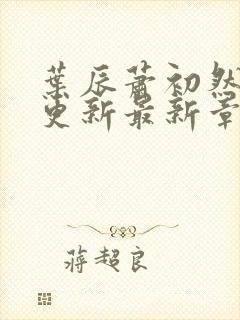 葉辰蕭初然
更新最新章
蔣超良